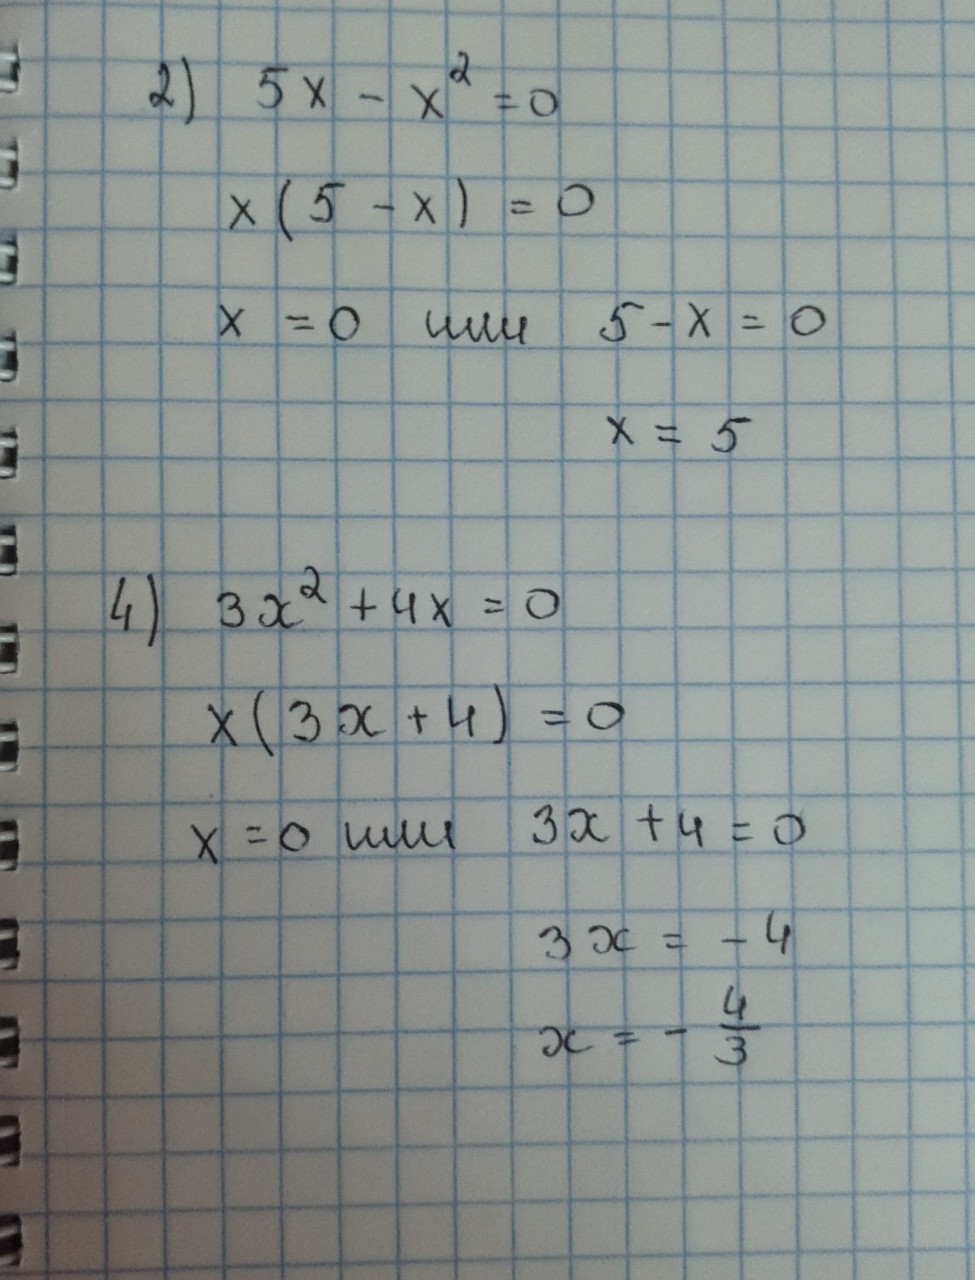 2) 5x - x² = 0
x(5 - x) = 0
x = 0 или 5 - x = 0
x = 5
4) 3x² + 4x = 0
x(3x + 4) = 0
x = 0 или 3x + 4 = 0
3x = - 4
x = - 4/3